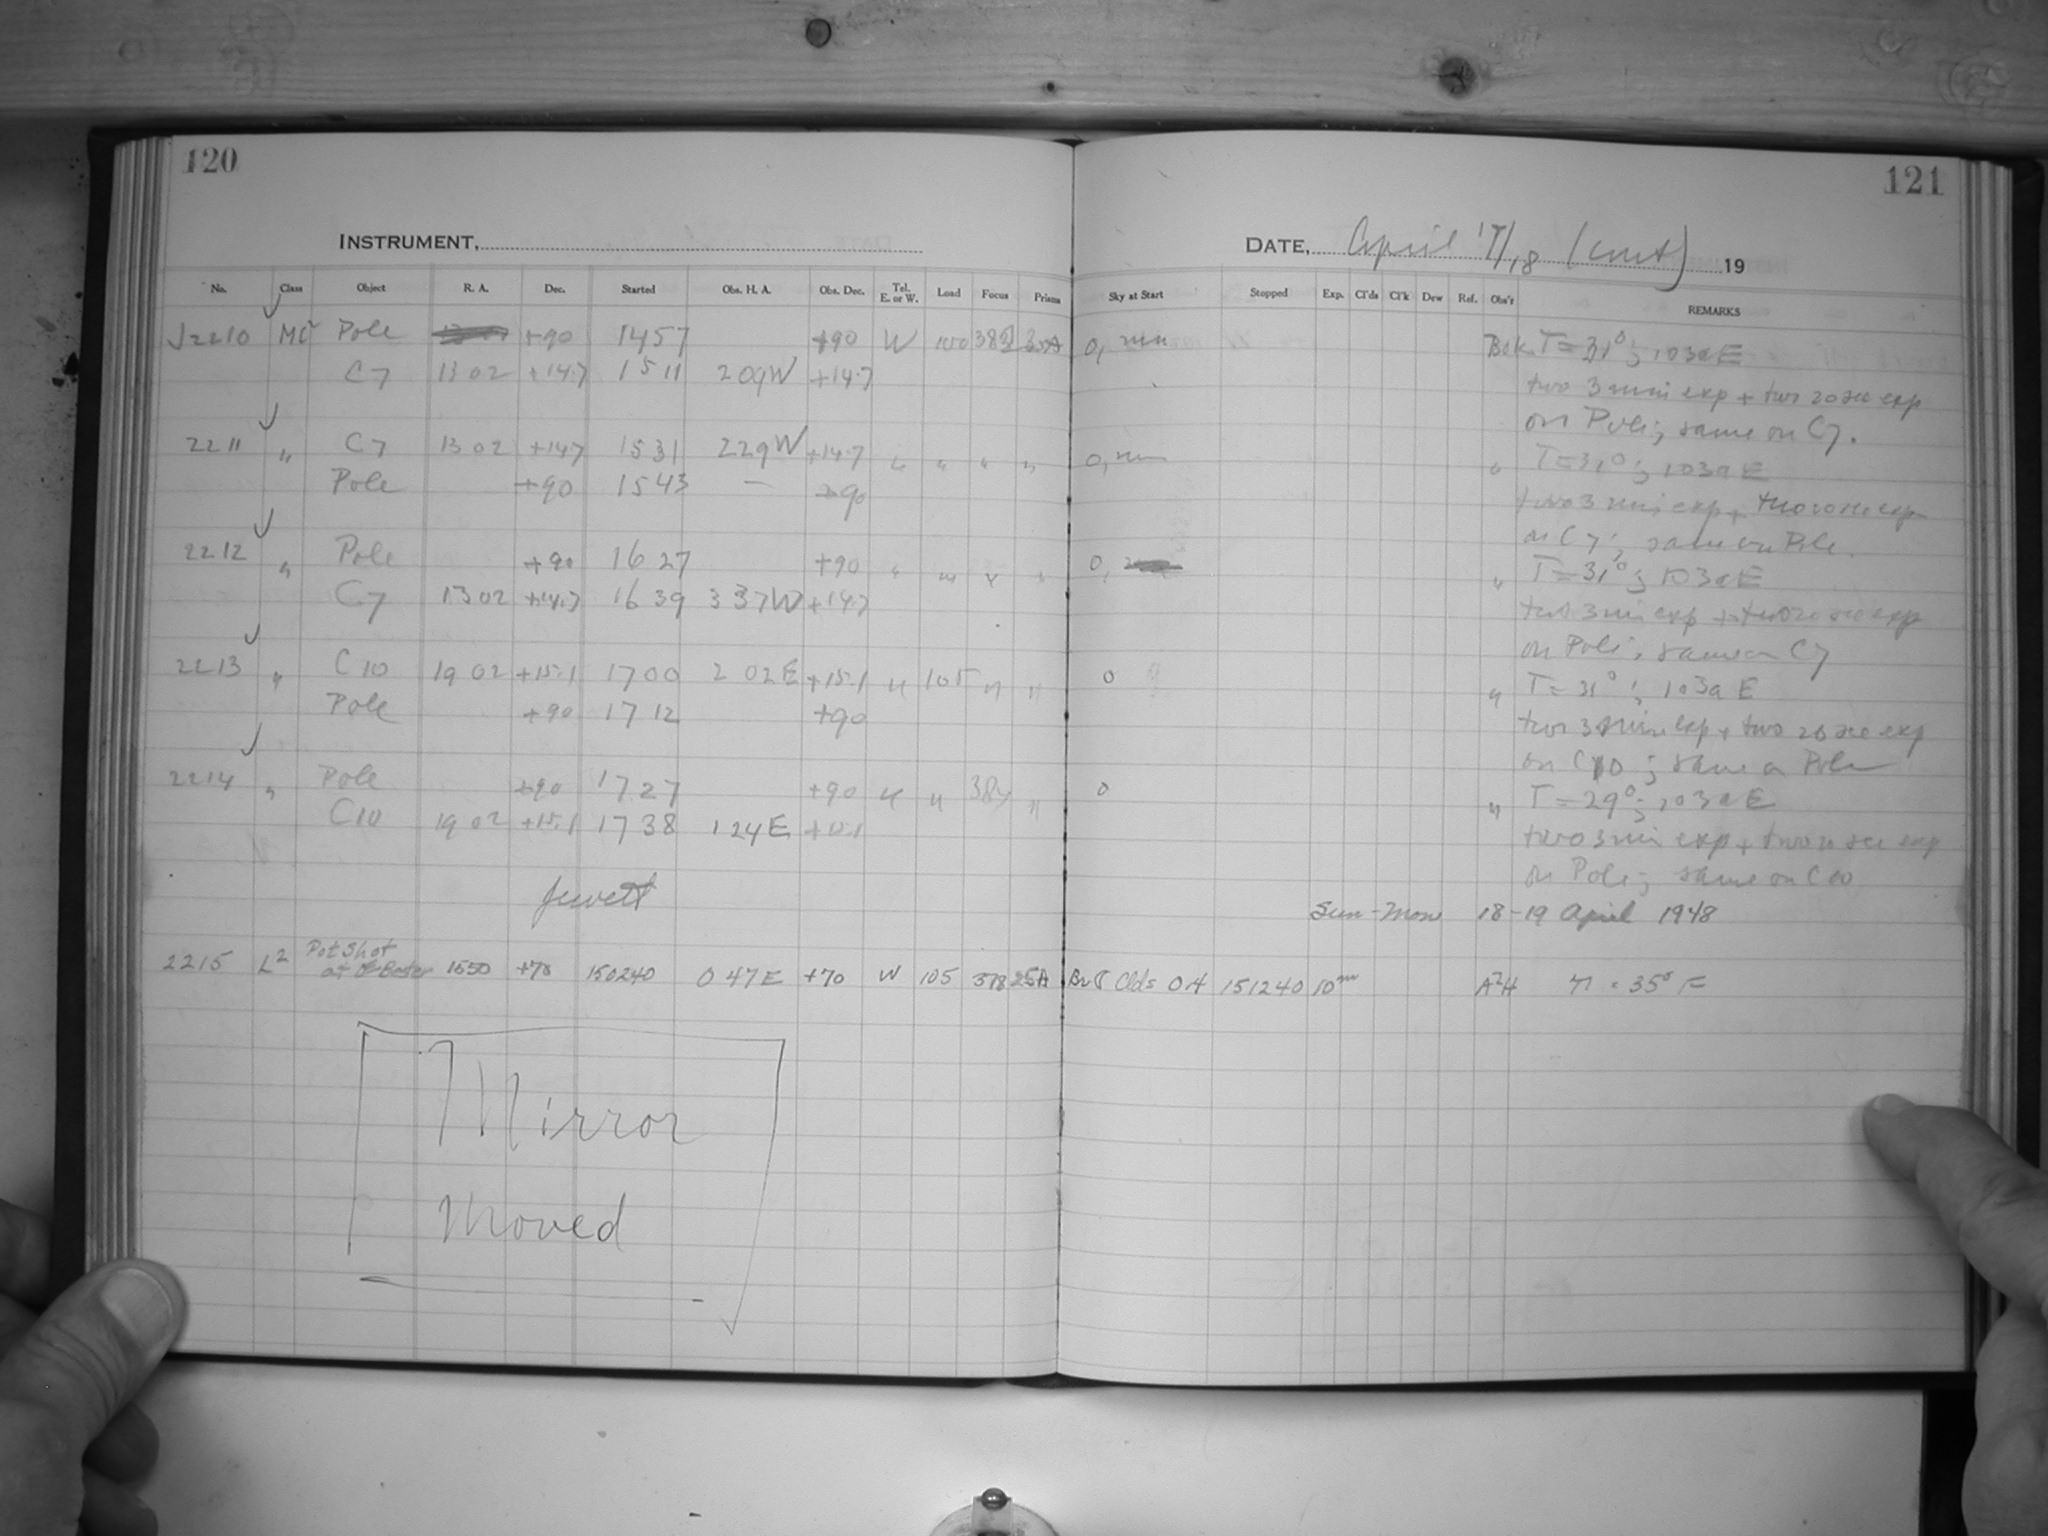 120
121
INSTRUMENT,
DATE, April 17/18 (cont) 19
No. Class Object R. A. Dec. Started Obs. H. A. Obs. Dec. Tel. E. or W. Load Focus Prism Sky at Start Stopped Exp. Cl'ds Cl'k Dew Ref. Obs'r REMARKS
J2210 MC Pole +90 1457 +90 W 100 0, Bok T = 31°; 103aE
C7 13 02 +14.7 1511 209W +14.7 two 3 min exp + two 20 sec exp
on Pole; same on C7.
2211 " C7 13 02 +14.7 1531 229W +14.7 " " " " 0, " T = 31°; 103aE
Pole +90 1543 — +90 two 3 min exp + two 20 sec exp
on C7; same on Pole.
2212 " Pole +90 1627 +90 " " " " 0, " T = 31°; 103aE
C7 1302 +14.7 1639 337W +14.7 two 3 min exp + two 20 sec exp
on Pole; same on C7
2213 " C10 19 02 +15.1 1700 2 02E +15.1 " 105 " " 0 " T = 31°; 103a E
Pole +90 1712 +90 two 3 min exp + two 20 sec exp
on C10; same on Pole
2214 " Pole +90 1727 +90 " " " 0 " T = 29°; 103a E
C10 19 02 +15.1 1738 124E +15.1 two 3 min exp + two 20 sec exp
on Pole; same on C10
Jewett
Sun - Mon 18-19 April 1948
2215 L2 Pot Shot at 1550 +70 150240 0 47E +70 W 105 378 25A Clds 151240 10m A2H T = 35° F
Mirror
Moved